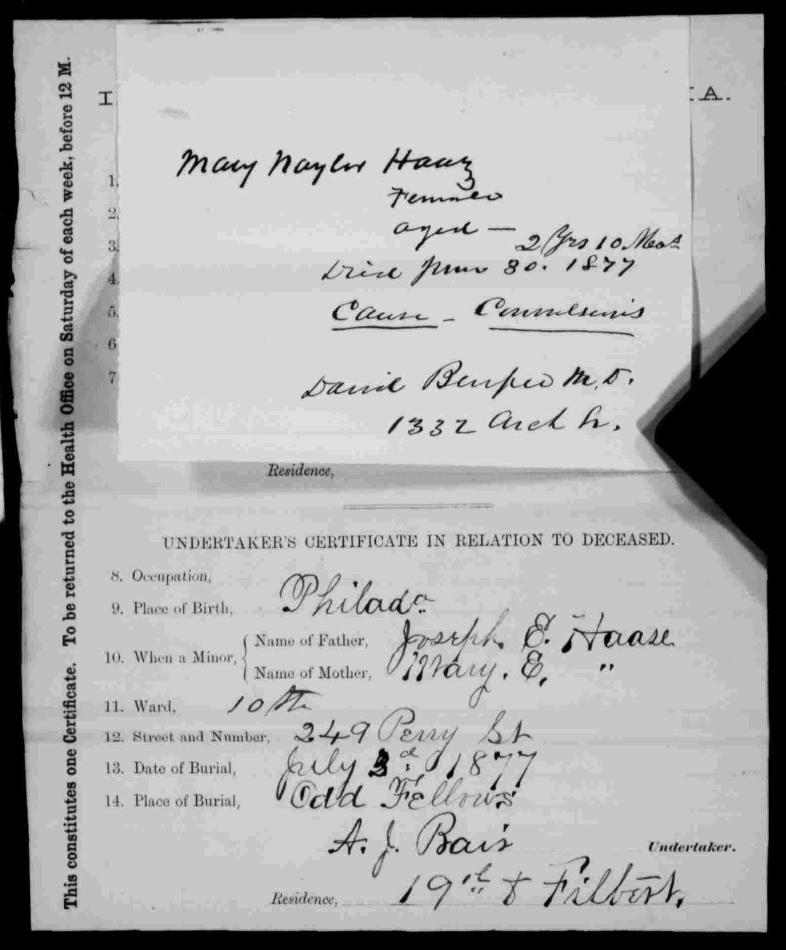 This constitutes one Certificate. To be returned to the Health Office on Saturday of each week, before 12 M.
I
IA.
1.
2.
3.
4.
5.
6
7
Mary Naylor Haaz
Female
aged — 2 Yrs 10 Mos
Died June 30. 1877
Cause - Convulsions
David M.D.
1332 Arch St.
Residence,
UNDERTAKER'S CERTIFICATE IN RELATION TO DECEASED.
8. Occupation,
9. Place of Birth, Philada
10. When a Minor, { Name of Father, Joseph. E. Haase
Name of Mother, Mary. E. "
11. Ward, 10th
12. Street and Number, 249 Perry St
13. Date of Burial, July 3d 1877
14. Place of Burial, Odd Fellows
A. J. Bair Undertaker.
Residence, 19th & Filbert.